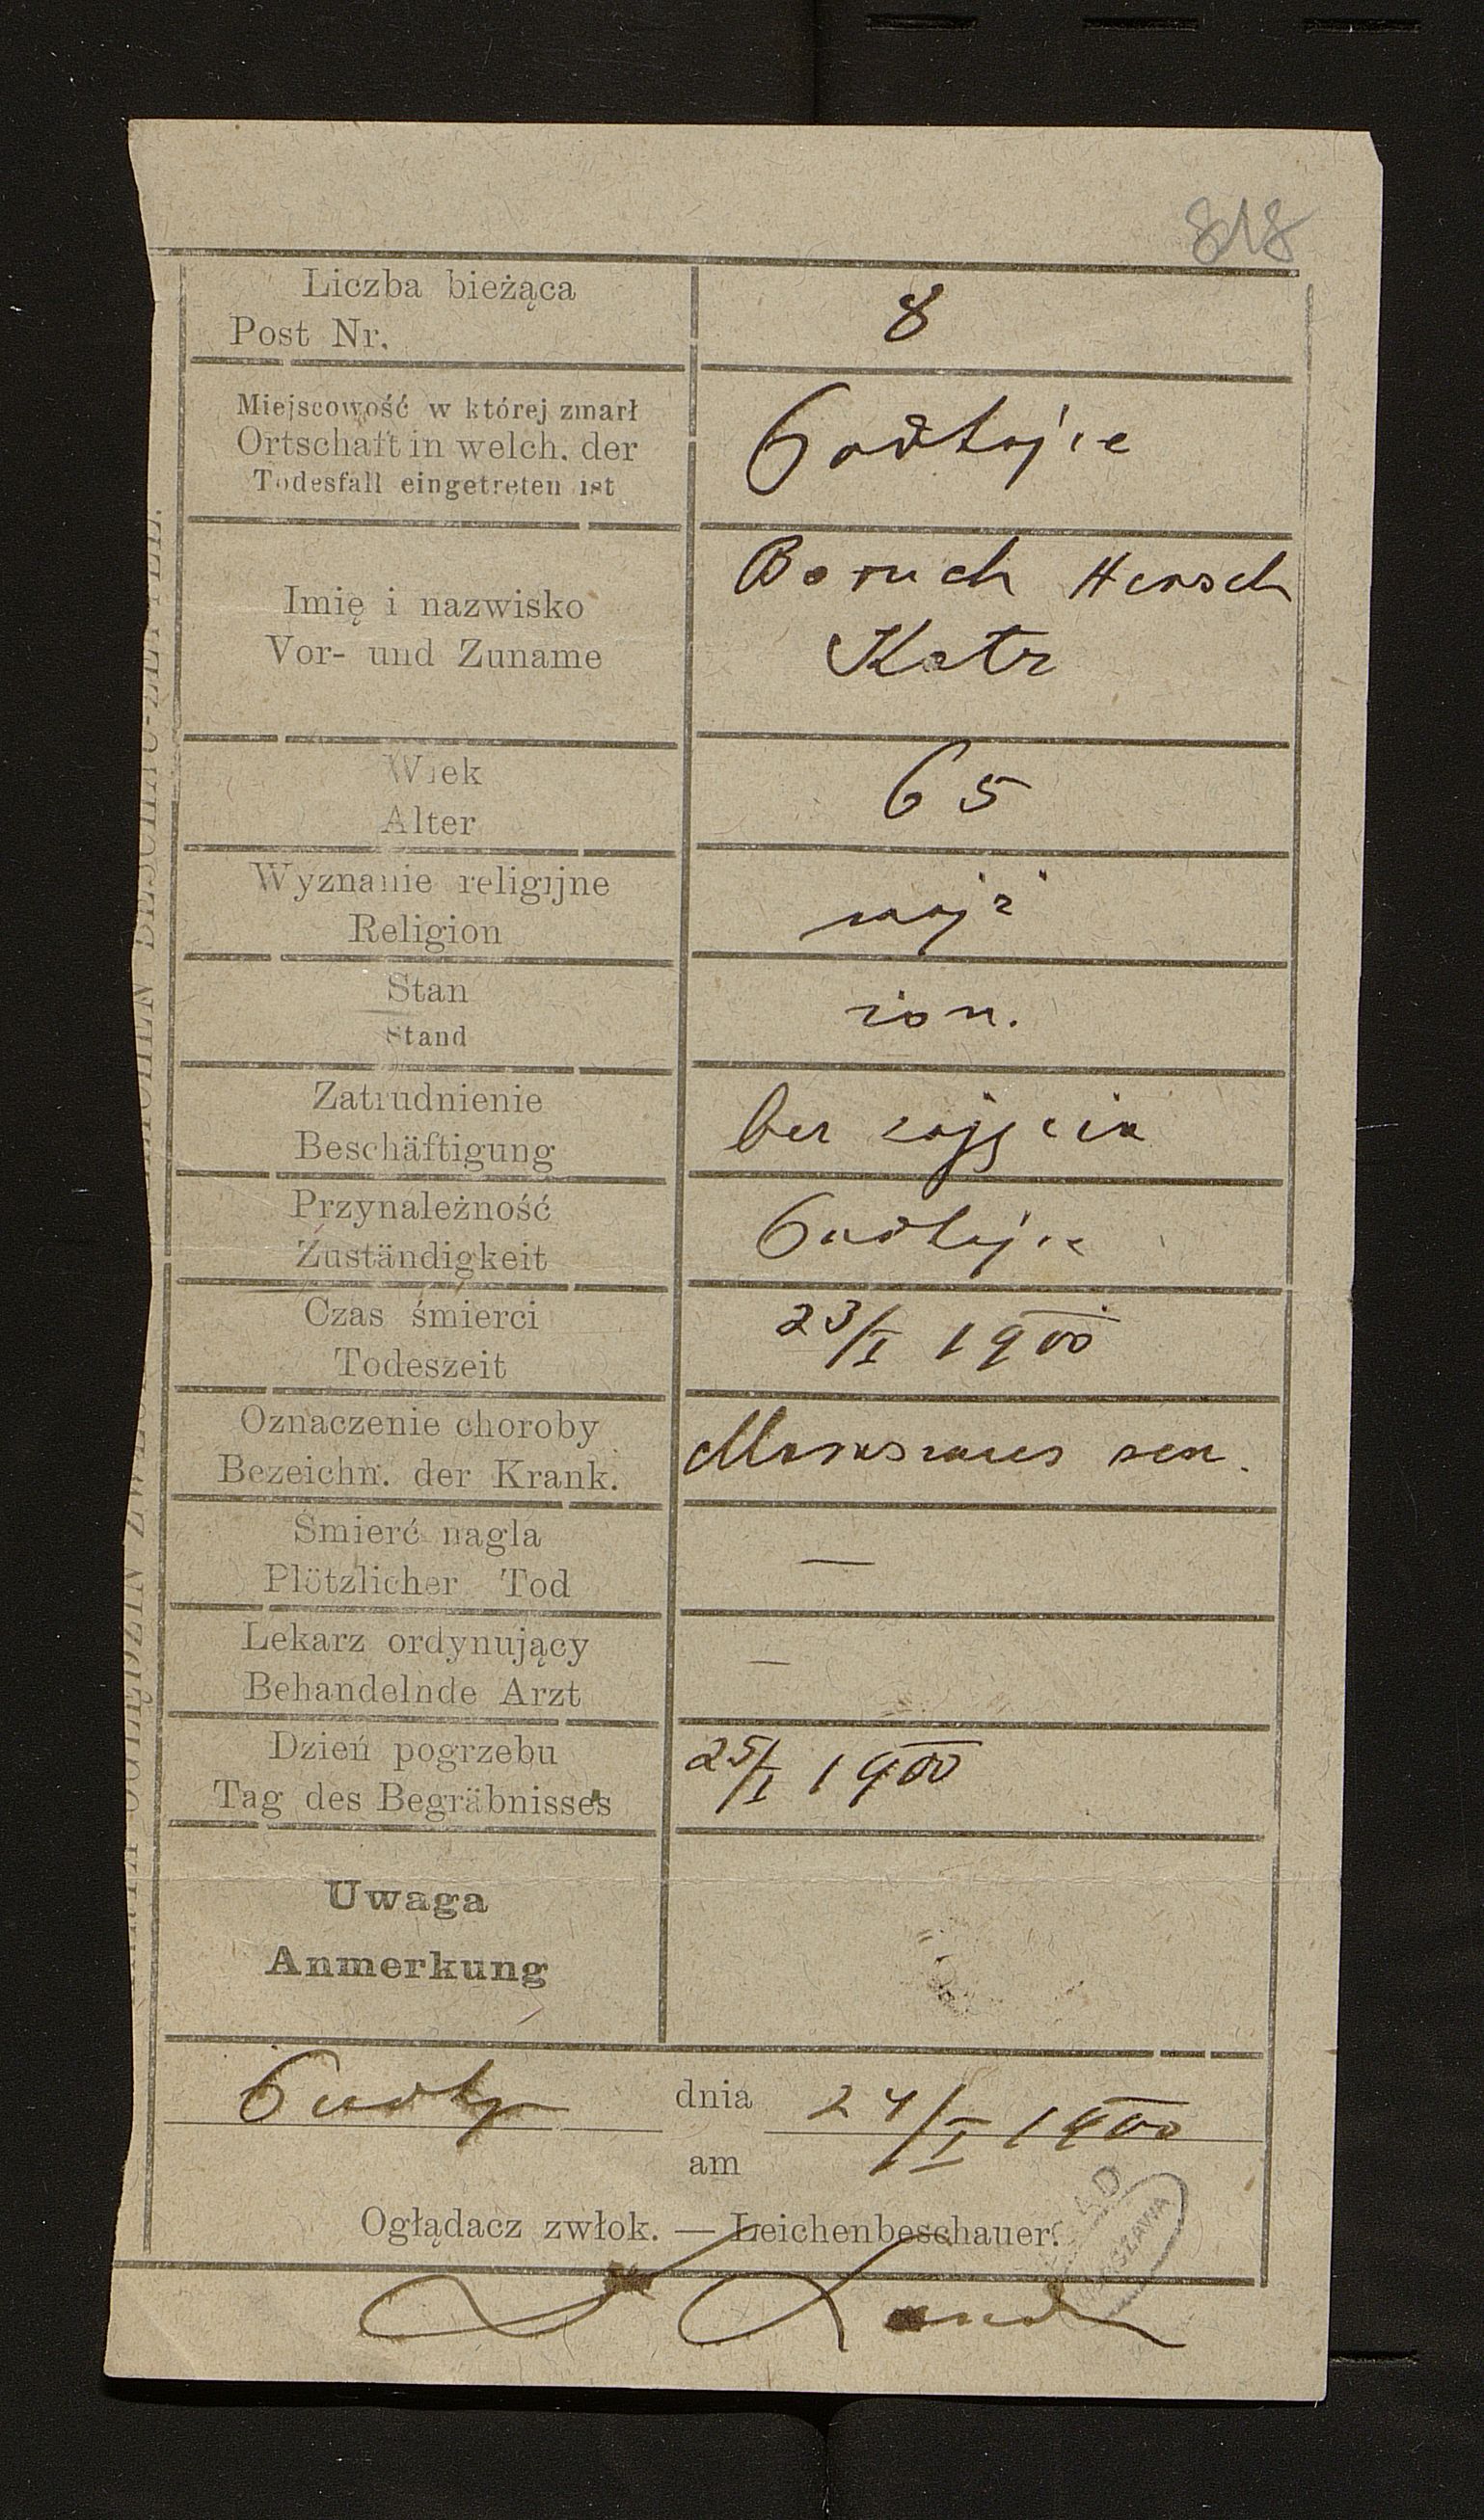 818
Liczba bieżąca
Post Nr.
8
Miejscowość w której zmarł
Ortschaft in welch. der
Todesfall eingetreten ist
Podhajce
Imię i nazwisko
Vor- und Zuname
Boruch Hersch
Katz
Wiek
Alter
65
Wyznanie religijne
Religion
mojż
Stan
Stand
żon.
Zatrudnienie
Beschäftigung
bez zajęcia
Przynależność
Zuständigkeit
Podhajce
Czas śmierci
Todeszeit
23/I 1900
Oznaczenie choroby
Bezeichn. der Krank.
Marasmus sen.
Śmierć nagla
Plötzlicher Tod
—
Lekarz ordynujący
Behandelnde Arzt
—
Dzień pogrzebu
Tag des Begräbnisses
25/I 1900
Uwaga
Anmerkung
Podhj dnia 24/I 1900
am
Oglądacz zwłok. — Leichenbeschauer.